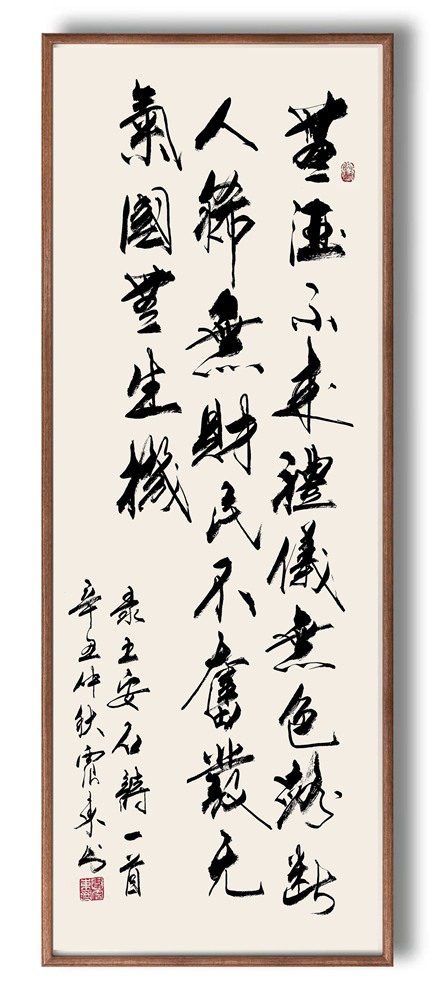 無酒不成禮儀無色路斷
人稀無財民不奮發无
氣國無生機
录王安石詩一首
辛丑仲秋東书